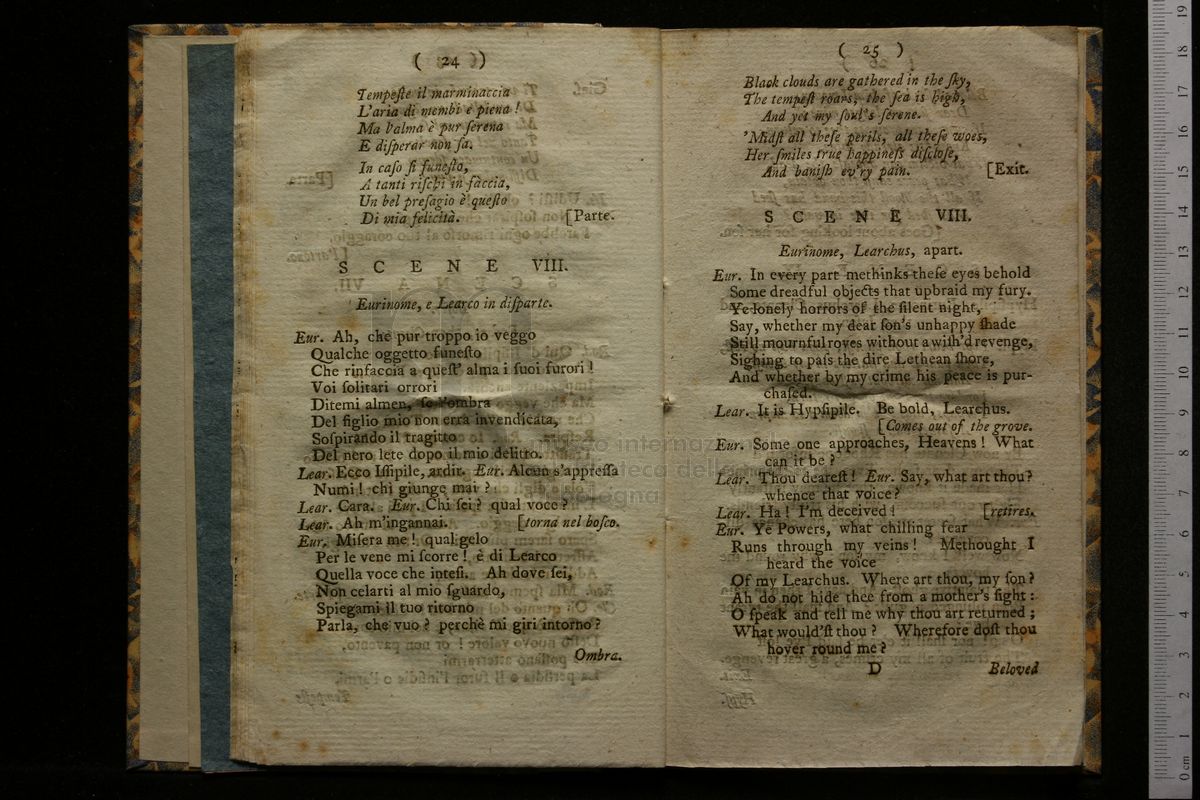 ( 24 )
Tempeste il marminaccia
L'aria di membi è piena !
Ma l'alma è pur ſerena
E diſperar non ſa.
In caſo ſi funeſto,
A tanti riſchi in faccia,
Un bel preſagio è queſto
Di mia felicità. [Parte.
S C E N E VIII.
Eurinome, e Learco in diſparte.
Eur. Ah, che pur troppo io veggo
Qualche oggetto funeſto
Che rinfaccia a queſt' alma i ſuoi furori !
Voi ſolitari orrori
Ditemi almen, ſe l'ombra
Del figlio mio non erra invendicata,
Soſpirando il tragitto
Del nero lete dopo il mio delitto.
Lear. Ecco Iſſipile, ardir. Eur. Alcun s'appreſſa
Numi ! chi giunge mai ?
Lear. Cara. Eur. Chi ſei ? qual voce ?
Lear. Ah m'ingannai. [torna nel boſco.
Eur. Miſera me ! qual gelo
Per le vene mi ſcorre ! è di Learco
Quella voce che inteſi. Ah dove ſei,
Non celarti al mio ſguardo,
Spiegami il tuo ritorno
Parla, che vuo ? perchè mi giri intorno ?
Ombra.
( 25 )
Black clouds are gathered in the ſky,
The tempeſt roars, the ſea is high,
And yet my ſoul's ſerene.
'Midſt all theſe perils, all theſe woes,
Her ſmiles true happineſs diſcloſe,
And baniſh ev'ry pain. [Exit.
S C E N E VIII.
Eurinome, Learchus, apart.
Eur. In every part methinks theſe eyes behold
Some dreadful objects that upbraid my fury.
Ye lonely horrors of the ſilent night,
Say, whether my dear ſon's unhappy ſhade
Still mournful roves without a wiſh'd revenge,
Sighing to paſs the dire Lethean ſhore,
And whether by my crime his peace is pur-
chaſed.
Lear. It is Hypſipile. Be bold, Learchus.
[Comes out of the grove.
Eur. Some one approaches, Heavens ! What
can it be ?
Lear. Thou deareſt ! Eur. Say, what art thou?
whence that voice ?
Lear. Ha ! I'm deceived ! [retires.
Eur. Ye Powers, what chilling fear
Runs through my veins ! Methought I
heard the voice
Of my Learchus. Where art thou, my ſon ?
Ah do not hide thee from a mother's ſight :
O ſpeak and tell me why thou art returned ;
What would'ſt thou ? Wherefore doſt thou
hover round me ?
D Beloved